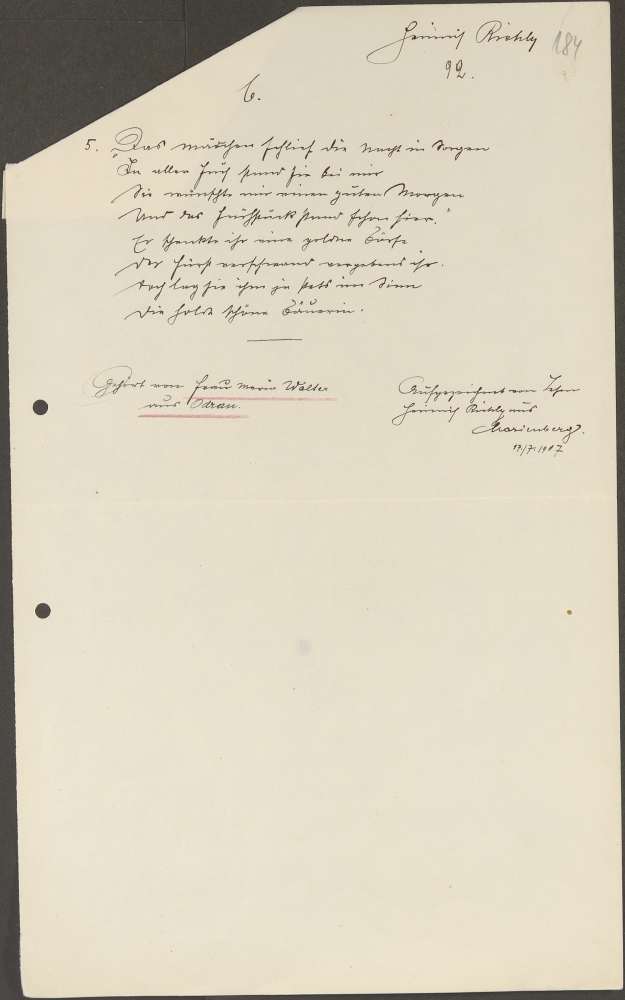 Heinrich Richly
184
92.
6.
5. „Das Mädchen schlief die Nacht in Sorgen
In aller Früh stand sie bei mir
Sie wünschte mir einen guten Morgen
Und das Frühstück stand schon hier."
Er schenkte ihr eine goldne Börse
Der Fürst verschwand vergebens ihr.
Doch lag sie ihm ja stets im Sinn
Die holde schöne Bäuerin.
Gehört von Frau Marie Walter
aus Odrau.
Aufgezeichnet von
Heinrich Richly aus
Marienberg.
17/7. 1907